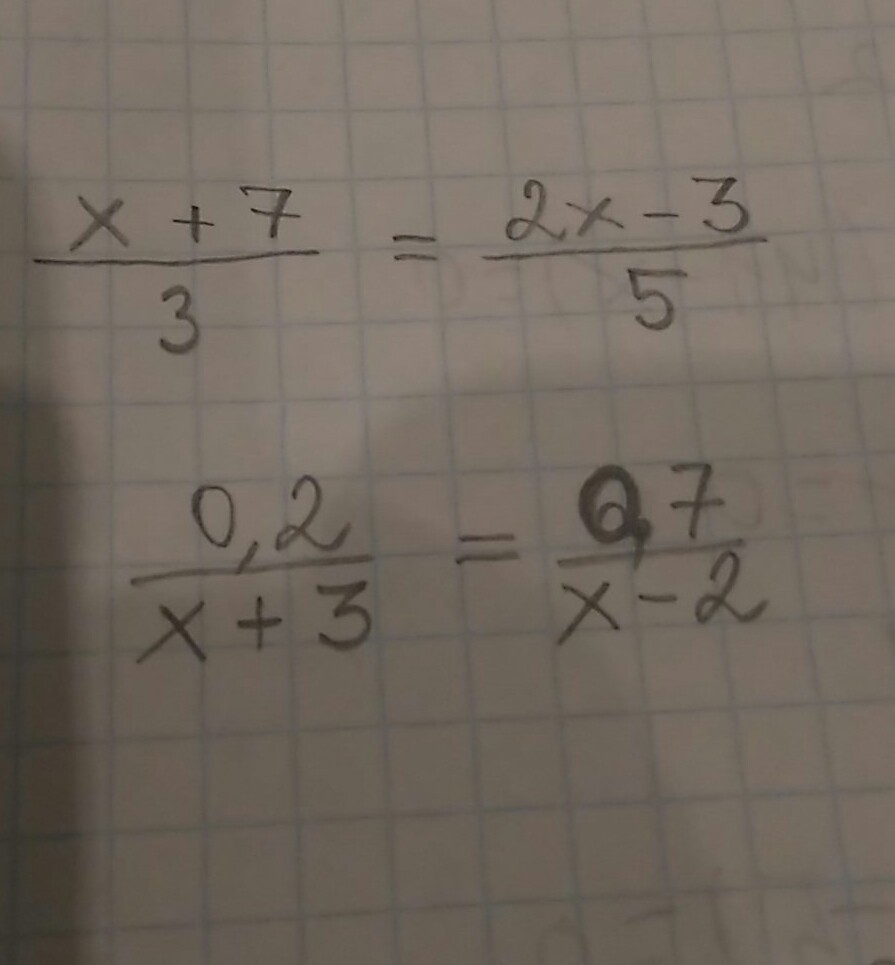 x + 7 / 3 = 2x - 3 / 5
0,2 / x + 3 = 0,7 / x - 2